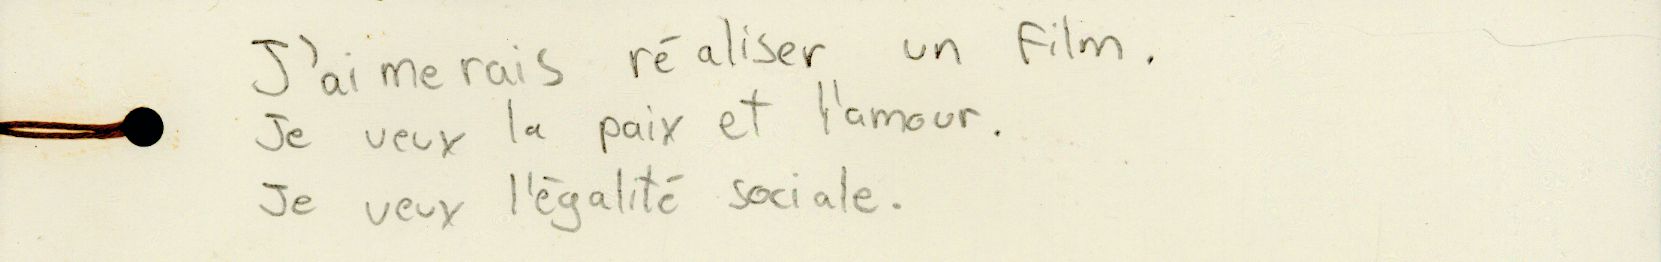 J'aimerais réaliser un film.
Je veux la paix et l'amour.
Je veux l'égalité sociale.